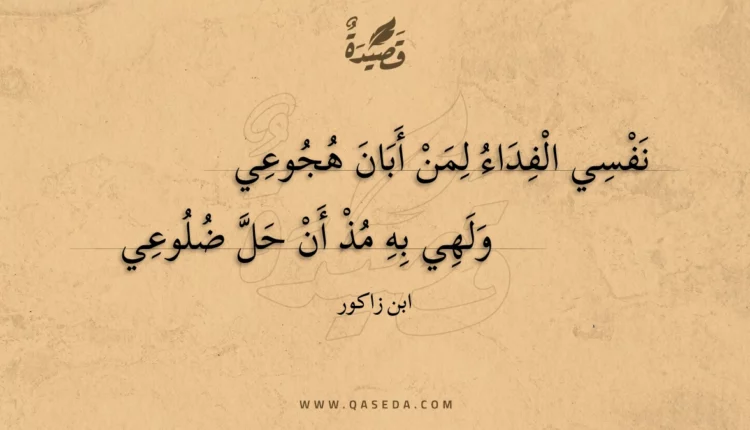 قَصِيْدَةٌ
نَفْسِي الْفِدَاءُ لِمَنْ أَبَانَ هُجُوعِي
وَلَهِي بِهِ مُذْ أَنْ حَلَّ ضُلُوعِي
ابن زاكور
WWW.QASEDA.COM